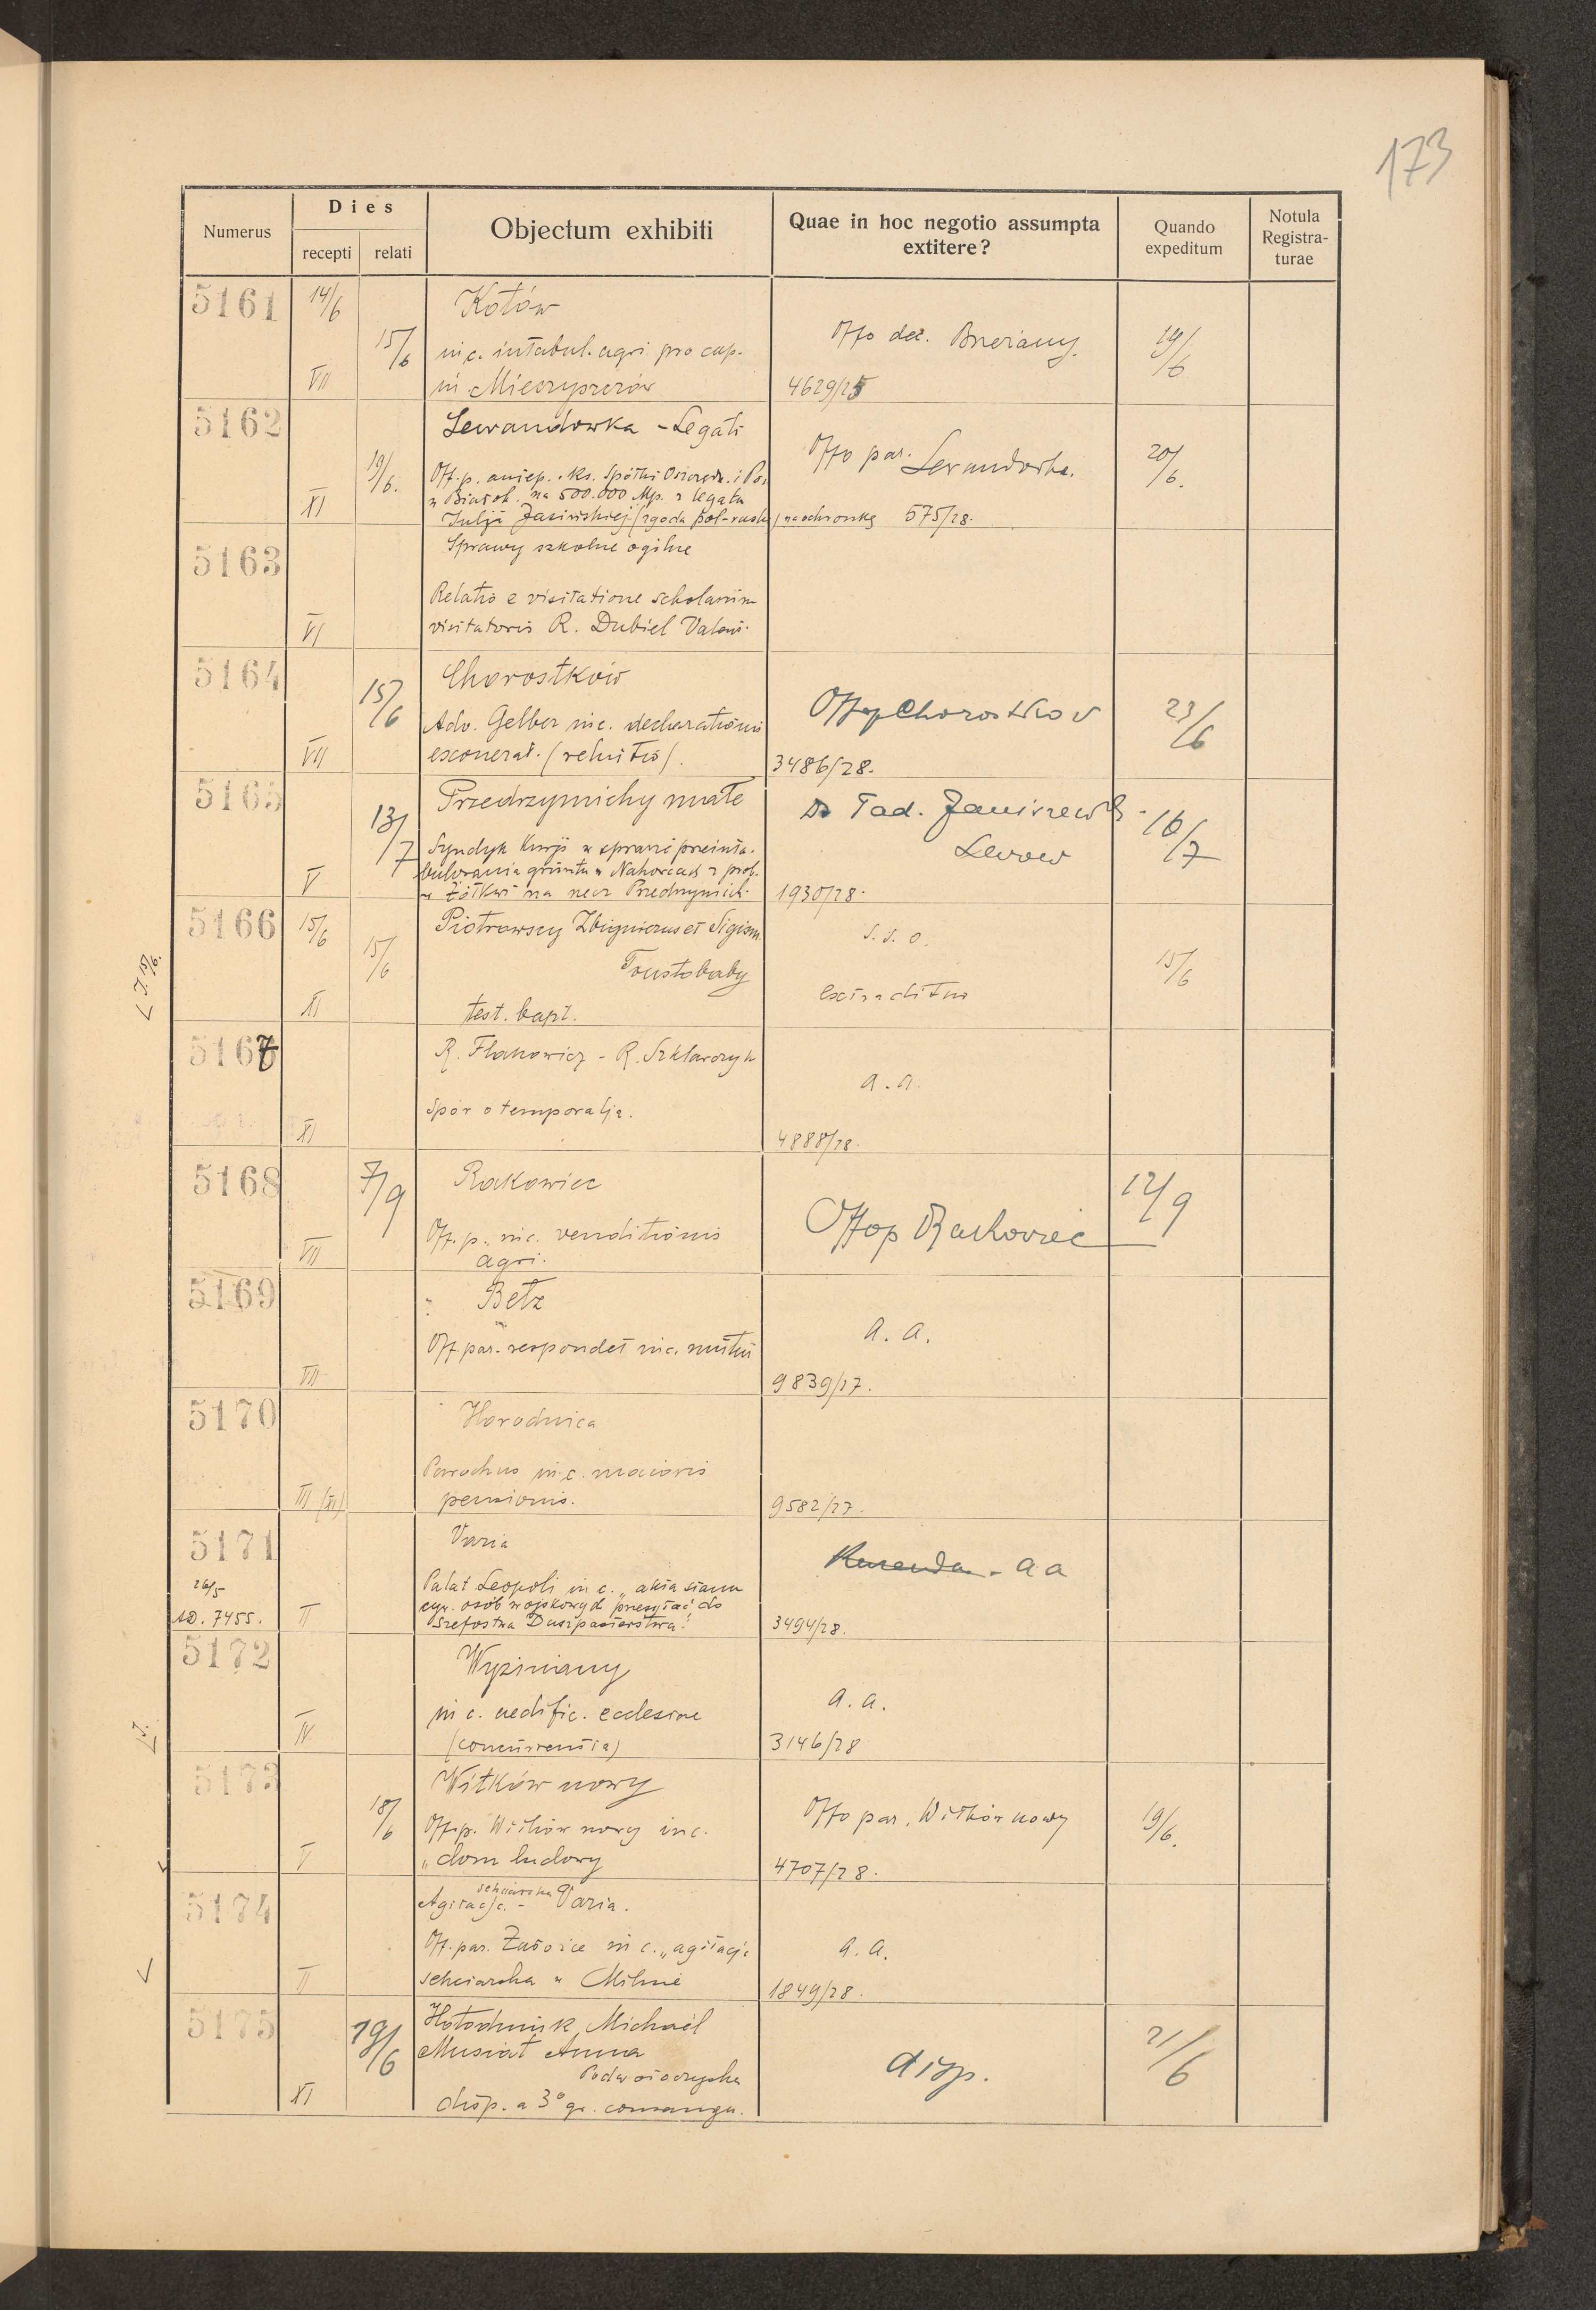 173
Numerus
Dies
recepti relati
Objectum exhibiti
Quae in hoc negotio assumpta extitere?
Quando expeditum
Notula Registra-
turae
5161 14/6 Kotów
15/6 in c. intabul. agri pro cap. Offo dec. Brzeżany. 19/6
VII in Mieczyszczów 4629/25
5162 Lewandówka - Legati
19/6. Off. p. Offo par. Lewandówka. 20/6.
XI na 500.000 Mp. z legatu
Julji Jasińskiej (zgoda pol-rusk) na ochronkę 575/28.
5163 Sprawy szkolne ogólne
Relatio e visitatione scholarum
VI visitatoris R. Dubiel Valent.
5164 Chorostków
15/6 Adv. Gelber in c. declarationis Offop Chorostków 23/6
VII exonerat. (reluitio). 3486/28.
5165 Przedrzymichy małe Dr Tad. Janiszewski
13/7 Syndyk Kurji w sprawie przeinta- Lwow 16/7
bulowania gruntu w Nahorcach z prob.
V w Żółkwi na rzecz Przedrzymich. 1930/28.
5166 15/6 Piotrowscy Zbigniew et Sigism. s. s. o.
< J. 15/6. 15/6 Toustobaby 15/6
XI test. bapt. extraditum
5167 R. Flakowicz - R. Szklarczyk
a. a.
Spór o temporalja.
XI 4888/28.
5168 7/9 Rakowiec 12/9
Off. p. in c. venditionis Offop Rakowiec
VII agri.
5169 Bełz
a. a.
Off. par. respondet in c. mutui
VII 9839/27.
5170 Horodnica
Parochus in c. maioris
III (XI) pensionis. 9582/27.
5171 Varia
Kurenda - a a
26/5 Palat Leopoli in c. „akta stanu
cyw. osób wojskowych przesyłać do
AD. 7455. II Szefostwa Duszpasterstwa" 3494/28.
5172 Wyżniany
a. a.
in c. aedific. ecclesiae
IV (concurrentia) 3146/28
5173 Witków nowy
18/6 Off. p. Witków nowy in c. Offo par. Witków nowy 19/6.
V „dom ludowy 4707/28.
5174 Agitacja sekciarska - Varia.
Off. par. Załoźce in c. „agitacja a. a.
II sekciarska w Milnie 1849/28.
5175 Hołodniuk Michael
19/6 Musiał Anna disp. 21/6
Podwołoczyska
XI disp. a 3° gr. consangu.